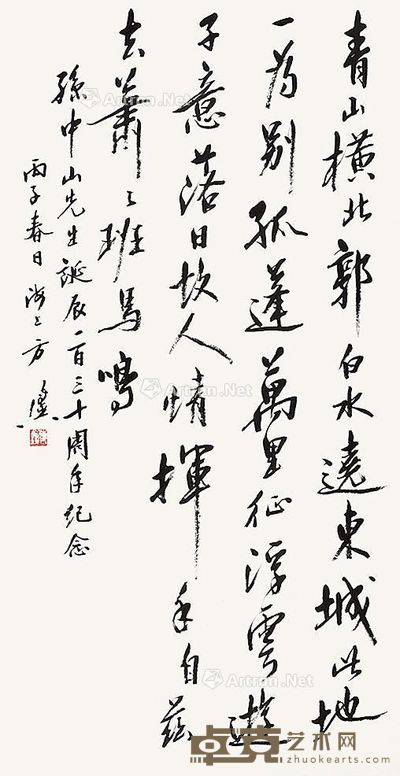 青山橫北郭白水遶東城此地
一为别孤蓬萬里征浮雲遊
子意落日故人情揮手自茲
去蕭々班馬鳴
孫中山先生誕辰一百三十周年紀念
丙子春日海上方
Artron.Net
Artron.Net
Artron.Net
Artron.Net
卓克艺术网
www.zhuokearts.com